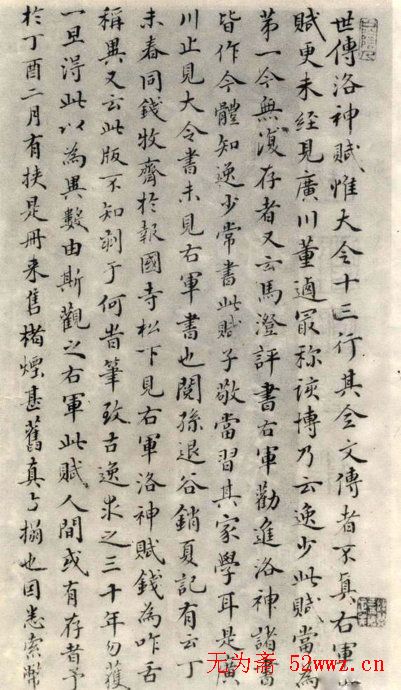 世傳洛神賦惟大令十三行其全文傳者不真右軍
賦更未經見廣川董逌最称該博乃云逸少此賦當為
第一今無復存者又云馬澄評書右軍勸進洛神諸書
皆作今體知逸少常書此賦子敬當習其家學耳是廣
川止見大令書未見右軍書也閱孫退谷銷夏記有云丁
未春同錢牧齋於報國寺松下見右軍洛神賦錢為咋舌
稱異又云此版不知刻于何时筆致古逸求之三十年勿獲
一旦淂此以為異數由斯觀之右軍此賦人間或有存者予
於丁酉二月有挟是冊来售楮煙甚舊真方搨也因悉索
无为斋 52wwz.cn